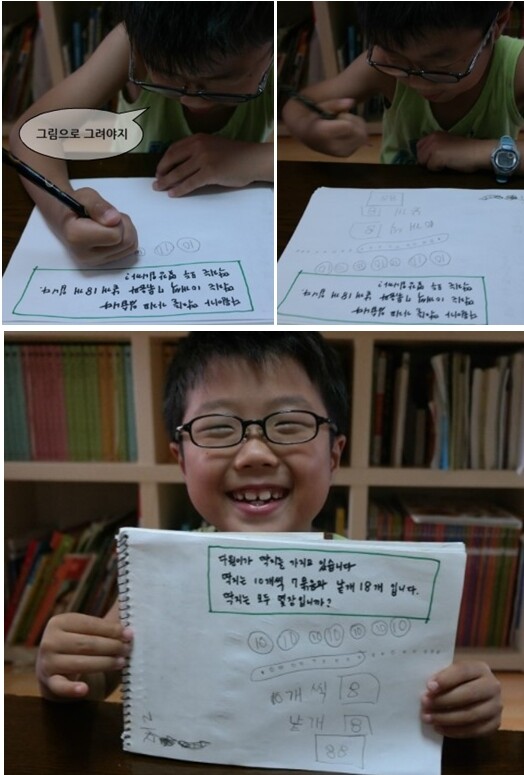 그림으로 그려야지
다원이가 딱지를 가지고 있습니다
딱지는 10개씩 7묶음과 낱개 18개 입니다.
딱지는 모두 몇장입니까?
10 10 10 10 10 10 10
10개씩 8
낱개 8
88